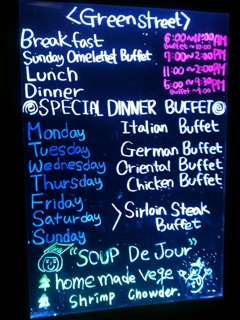 <Greenstreet>
Breakfast 6:00~11:00AM
Buffet~10:00
Sunday Omelettet Buffet 7:00~
Lunch 11:00~2:00PM
Dinner 5:00~9:30PM
Buffet~9:00
SPECIAL DINNER BUFFET
Monday Italian Buffet
Tuesday German Buffet
Wednesday Oriental Buffet
Thursday Chicken Buffet
Friday
Saturday > Sirloin Steak
Buffet
Sunday
"SOUP De Jour"
homemade vege
Shrimp Chowder.